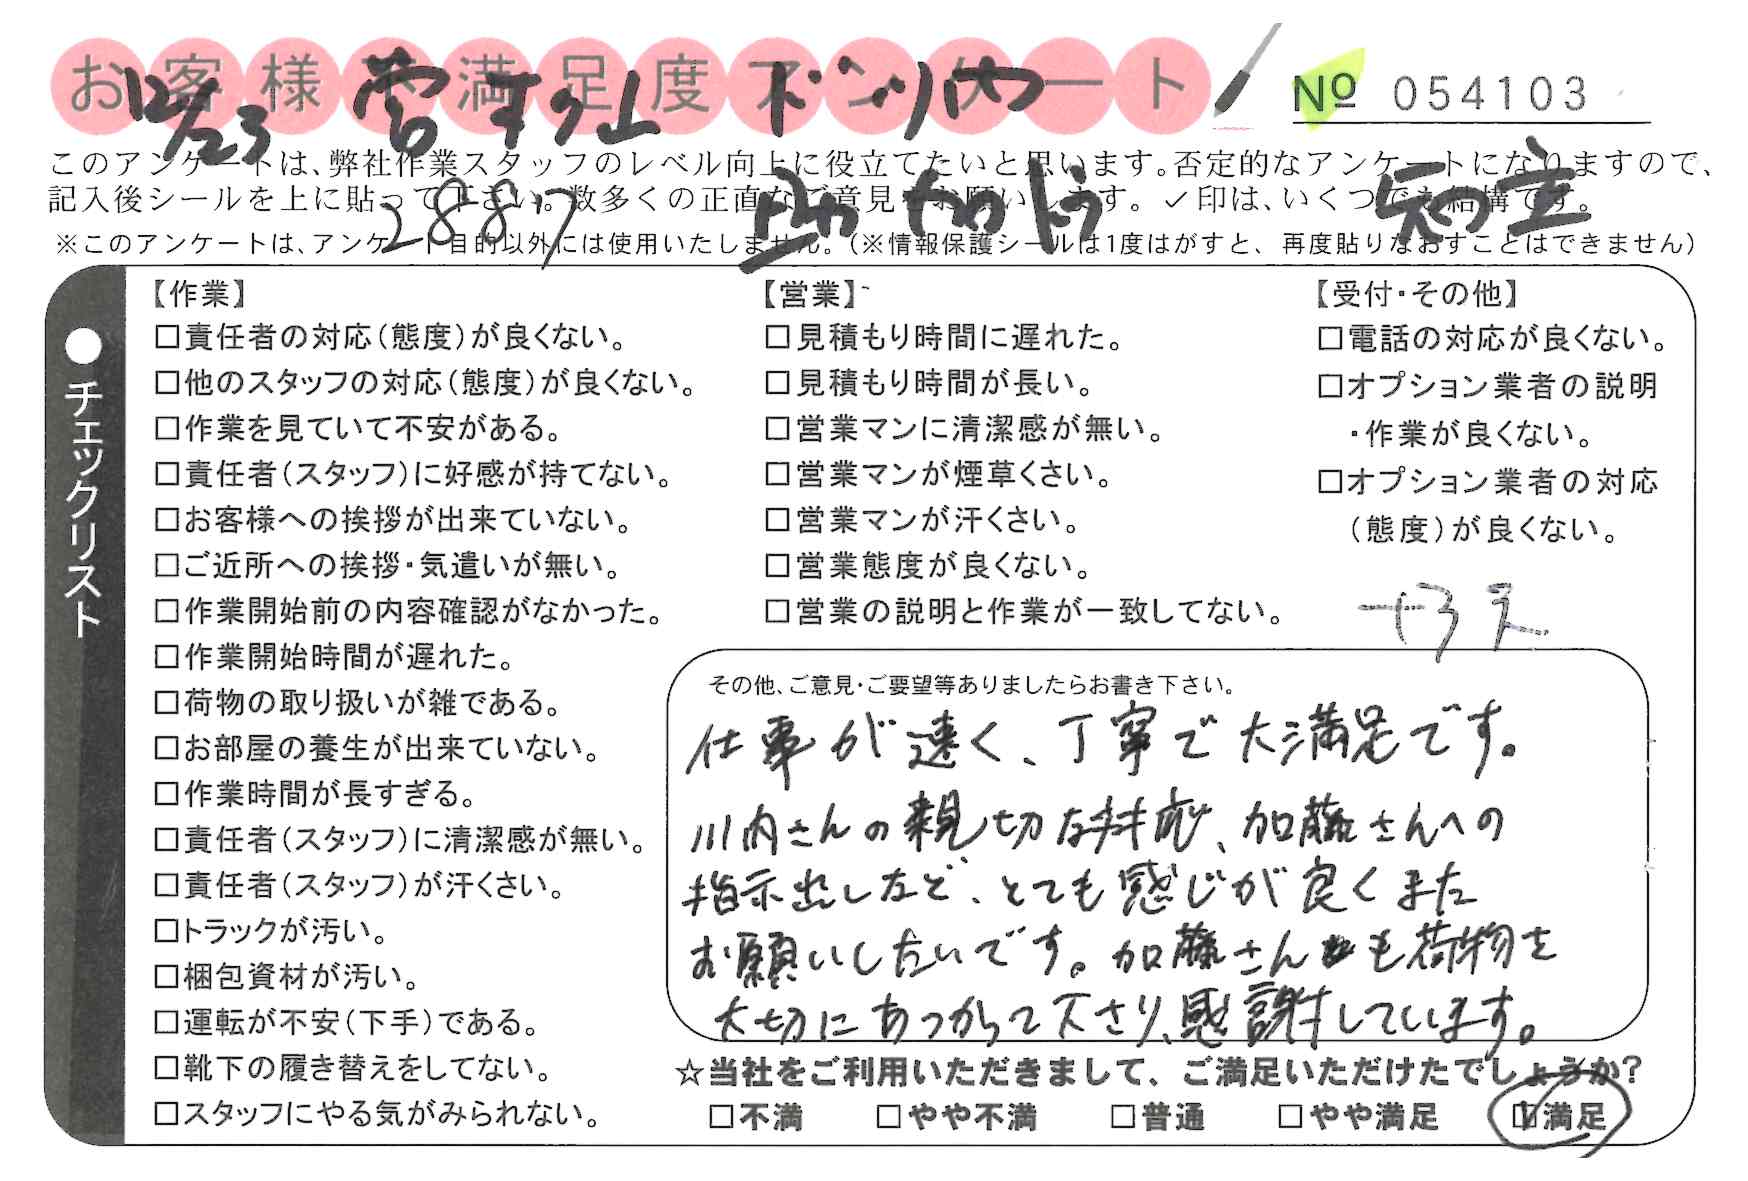 お客様不満足度アンケート
№ 054103
12/23
このアンケートは、弊社作業スタッフのレベル向上に役立てたいと思います。否定的なアンケートになりますので、
記入後シールを上に貼って下さい。数多くの正直なご意見をお願いします。✓印は、いくつでも結構です。
2887
知立
※このアンケートは、アンケート目的以外には使用いたしません。(※情報保護シールは1度はがすと、再度貼りなおすことはできません)
●チェックリスト
【作業】
□責任者の対応(態度)が良くない。
□他のスタッフの対応(態度)が良くない。
□作業を見ていて不安がある。
□責任者(スタッフ)に好感が持てない。
□お客様への挨拶が出来ていない。
□ご近所への挨拶・気遣いが無い。
□作業開始前の内容確認がなかった。
□作業開始時間が遅れた。
□荷物の取り扱いが雑である。
□お部屋の養生が出来ていない。
□作業時間が長すぎる。
□責任者(スタッフ)に清潔感が無い。
□責任者(スタッフ)が汗くさい。
□トラックが汚い。
□梱包資材が汚い。
□運転が不安(下手)である。
□靴下の履き替えをしてない。
□スタッフにやる気がみられない。
【営業】
□見積もり時間に遅れた。
□見積もり時間が長い。
□営業マンに清潔感が無い。
□営業マンが煙草くさい。
□営業マンが汗くさい。
□営業態度が良くない。
□営業の説明と作業が一致してない。
【受付・その他】
□電話の対応が良くない。
□オプション業者の説明
・作業が良くない。
□オプション業者の対応
(態度)が良くない。
その他、ご意見・ご要望等ありましたらお書き下さい。
仕事が速く、丁寧で大満足です。
川内さんの親切な対応、加藤さんへの
指示出しなど、とても感じが良くまた
お願いしたいです。加藤さんも荷物を
大切にあつかって下さり、感謝しています。
☆当社をご利用いただきまして、ご満足いただけたでしょうか?
□不満 □やや不満 □普通 □やや満足 ☑満足